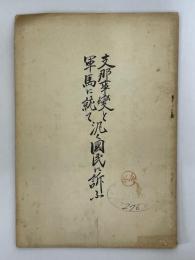 支那事變と汎く國民に訴ふ
軍馬に就て
276